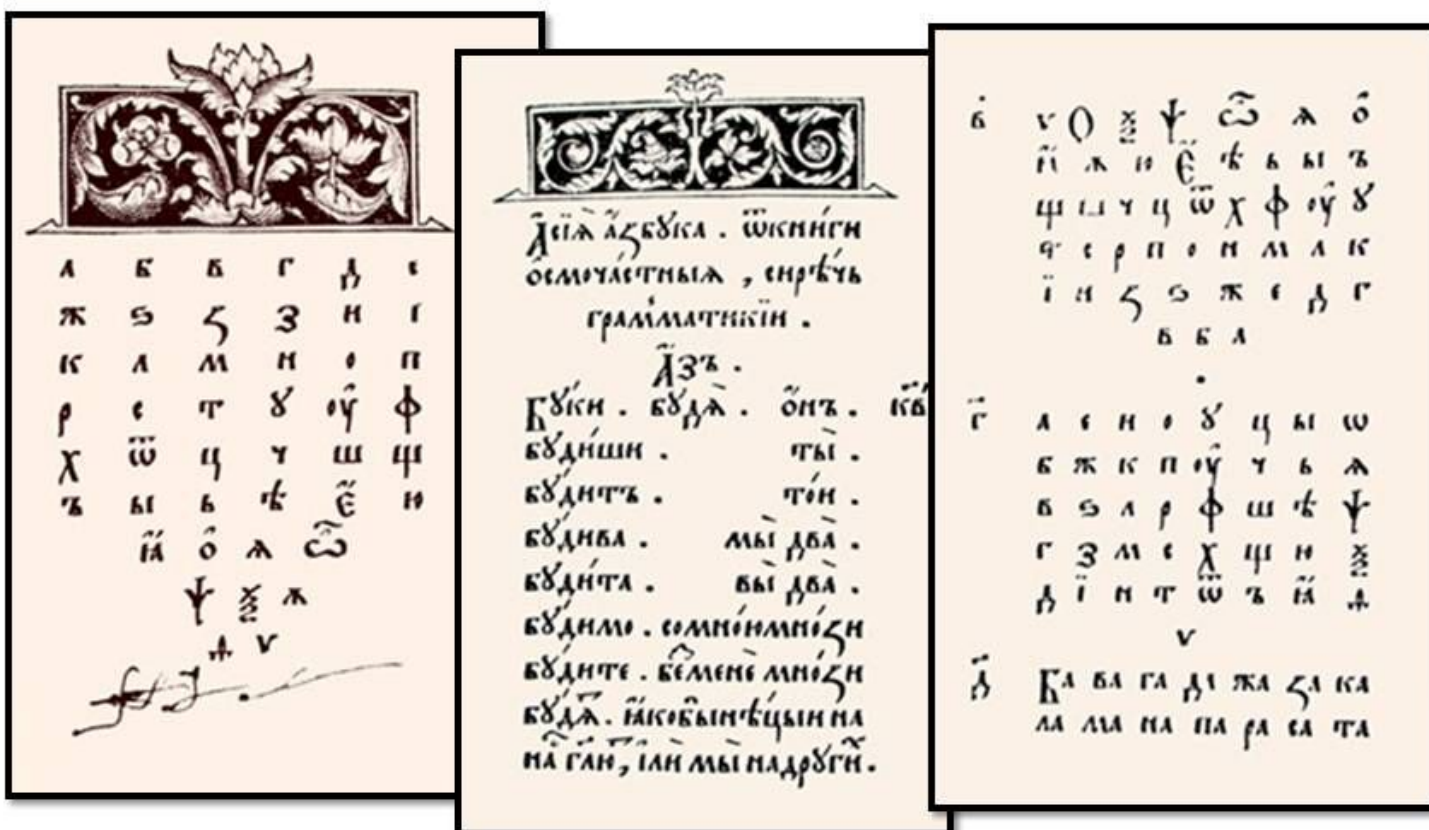 а б в г д е
ж ѕ ꙁ з и і
к л м н о п
р с т ꙋ оу҆ ф
х ѿ ц ч ш щ
ъ ы ь ѣ є҆ ю
ꙗ҆ о҆ ѫ ѽ
ѱ ѯ ѫ
ѧ ѵ
А҆сїѧ̀ а҆́ꙁбꙋка . ѿкни́ги
о҆смоча́стныѧ , сирѣ́чь
грамма́тикїи .
А҆́зъ .
Бꙋ́ки . бꙋдѧ̀ . ѻ҆́нъ .
бꙋди́ши . ты̀ .
бꙋди́тъ . то́и .
бꙋди́ва . мы̀ два̀ .
бꙋди́та . вы̀ два̀ .
бꙋди́мо . сомно́юмно́ꙁи
бꙋди́те . бе҆менѐ мно́ꙁи
бꙋ́дѧ . ꙗ҆ковы́нѣцыи на
на̀ гл҃ю , і҆лѝ мы̀ надрꙋги́ .
в ѵ Ѻ ѯ ѱ ѽ ѫ о҆
ꙗ҆ ѫ ю є҆ ѣ ь ы ъ
щ ш ч ц ѿ х ф оу҆ ꙋ
т с р п о н м л к
ї и ꙁ ѕ ж е д г
в б а
.
г а е н о ꙋ ц ы ѡ
б ж к п оу҆ ч ь ѫ
в ѕ л р ф ш ѣ ѱ
г з м с х щ ю ѯ
д ї н т ѿ ъ ꙗ҆ ѧ
ѵ
д Ба ва га да жа ꙁа ка
ла ма на па ра са та